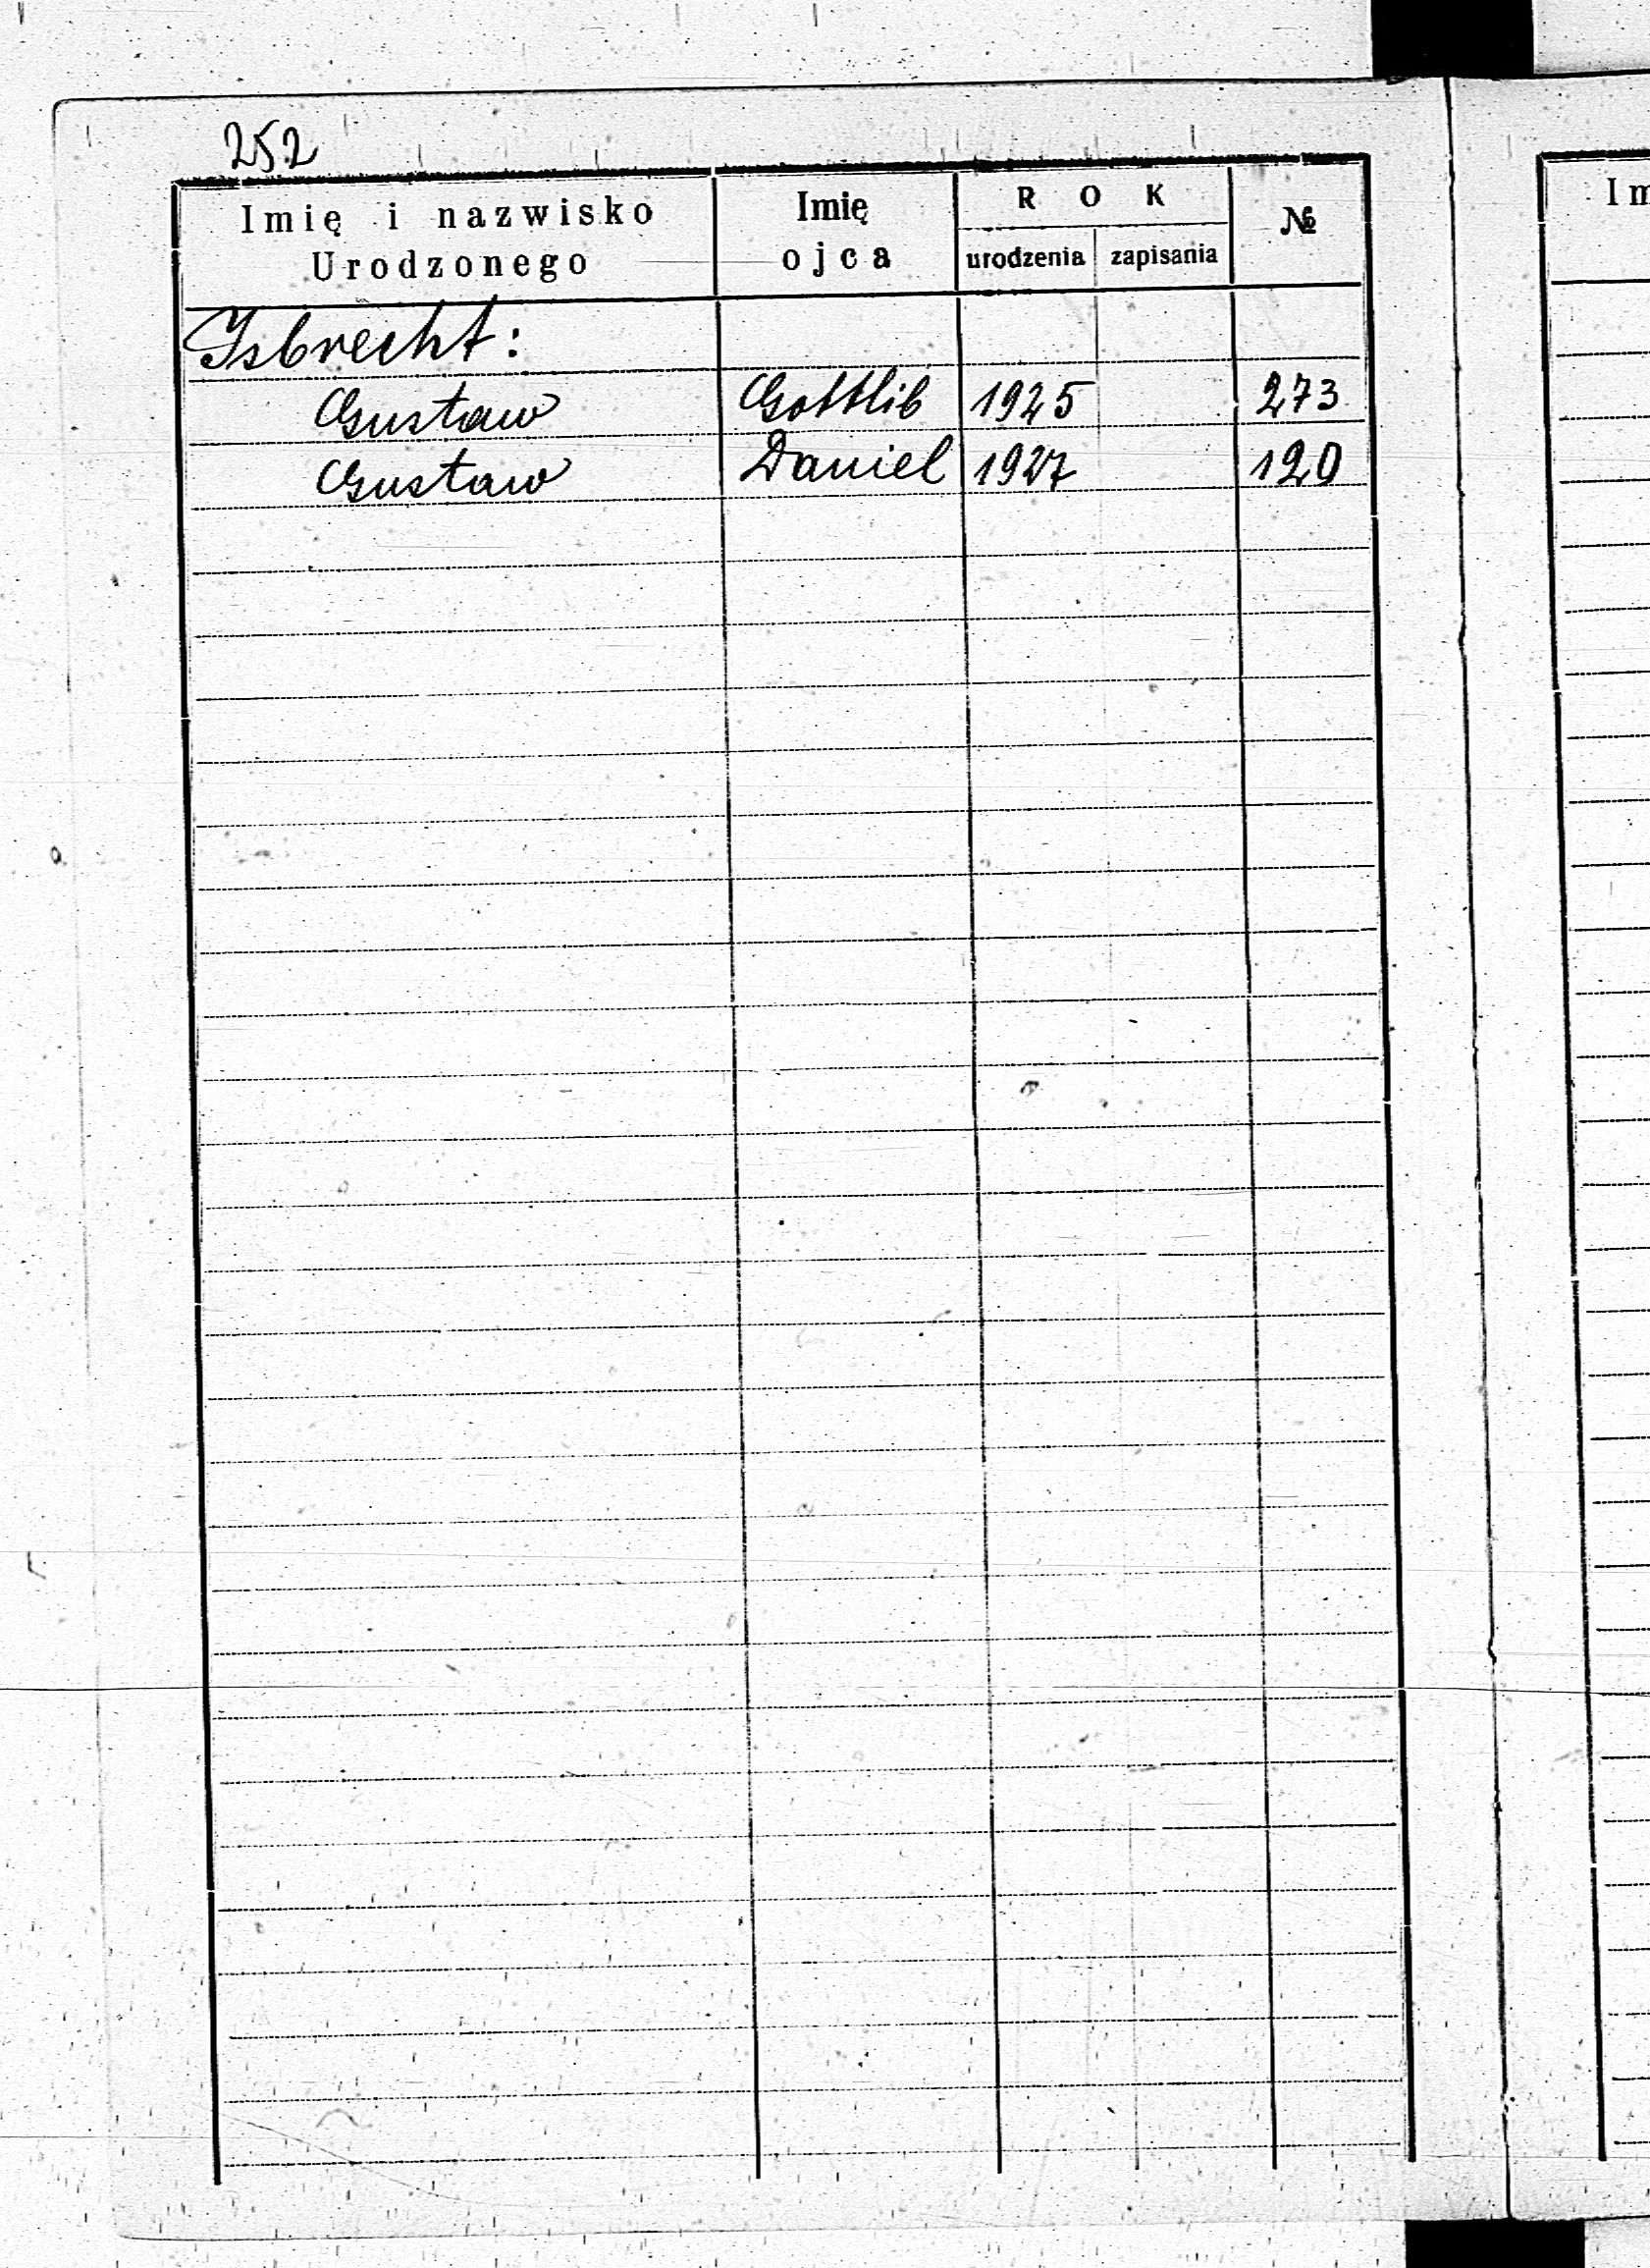 252
Imię i nazwisko Urodzonego
Imię ojca
ROK
urodzenia zapisania
№
Isbrecht:
Gustaw Gottlib 1925 273
Gustaw Daniel 1927 120
Im